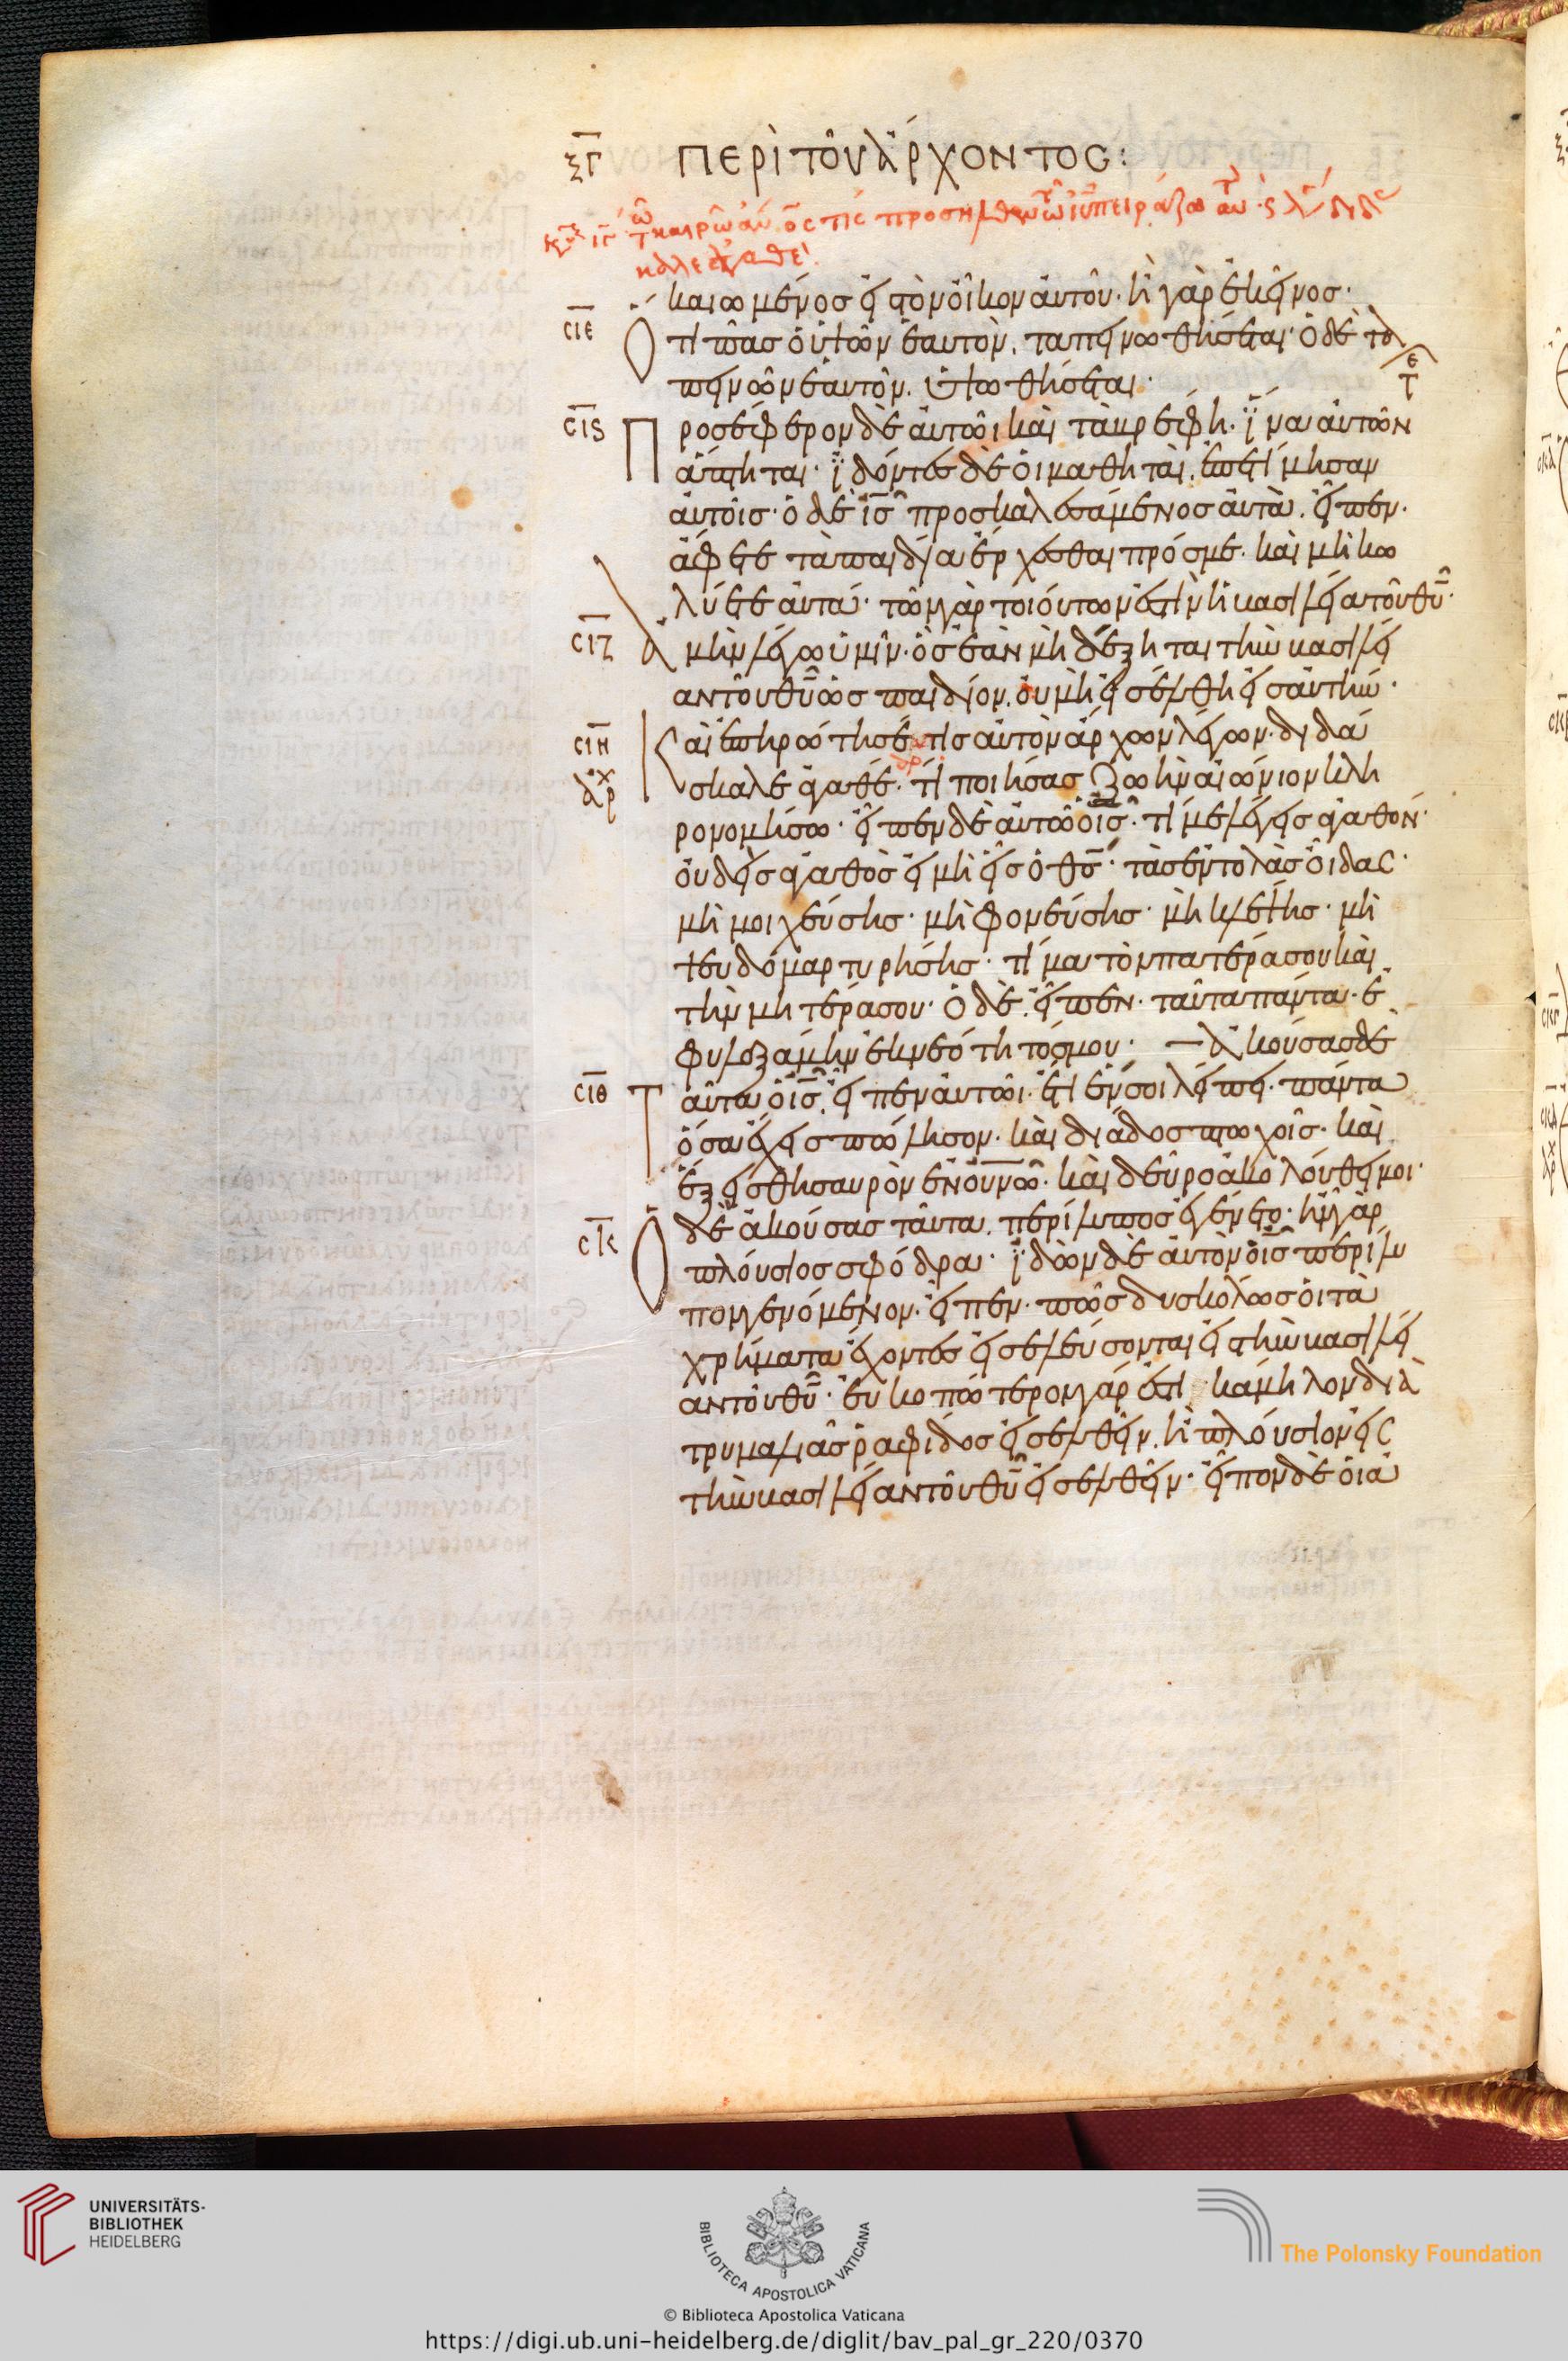 ξγ ΠΕΡῚ ΤΟΥ͂ ἌΡΧΟΝΤΟC:
τ καιρῶ
καιωμένος εἰς τὸν οἶκον αὐτοῦ· ἢ γὰρ ἐκεῖνος·
σιε Ὅτι πᾶς ὁ ὑψῶν ἑαυτὸν, ταπεινωθήσεται· ὁ δὲ τα
πεινῶν ἑαυτὸν, ὑψωθήσεται·
σιϛ Προσέφερον δὲ αὐτῶι καὶ τὰ βρέφη· ἵνα αὐτῶν
ἅπτηται· ἰδόντες δὲ οἱ μαθηταὶ, ἐπετίμησαν
αὐτοῖς· ὁ δὲ ις προσκαλεσάμενος αὐτὰ, εἶπεν·
ἄφετε τὰ παιδία ἔρχεσθαι πρός με· καὶ μὴ κω
λύετε αὐτά· τῶν γὰρ τοιούτων ἐστὶν ἡ βασιλεία τοῦ θυ·
σιζ Ἀμὴν λέγω ὑμῖν· ὃς ἐὰν μὴ δέξηται τὴν βασιλεί
αν τοῦ θυ ὡς παιδίον, οὐ μὴ εἰσέλθη εἰς αὐτήν·
σιη Καὶ ἐπηρώτησέ τις αὐτὸν ἄρχων λέγων· διδά
ἀρχ σκαλε ἀγαθέ· τί ποιήσας ζωὴν αἰώνιον κλη
ρονομήσω· εἶπεν δὲ αὐτῶ ὁ ις· τί με λέγεις ἀγαθόν·
οὐδεὶς ἀγαθὸς εἰ μὴ εἷς ὁ θς· τὰς ἐντολὰς οἶδας·
μὴ μοιχεύσης· μὴ φονεύσης· μὴ κλέψης· μὴ
ψευδομαρτυρήσης· τίμα τὸν πατέρα σου καὶ
τὴν μητέρα σου· ὁ δὲ, εἶπεν· ταῦτα πάντα ἐ
φυλαξάμην ἐκ νεότητός μου· — Ἀκούσας δὲ
σιθ Ταῦτα ὁ ις, εἶπεν αὐτῶι· ἔτι ἕν σοι λείπει· πάντα
ὅσα ἔχεις πώλησον· καὶ διάδος πτωχοῖς· καὶ
ἕξεις θησαυρὸν ἐν ουνω· καὶ δεῦρο ἀκολούθει μοι·
σκ Ὁ δὲ ἀκούσας ταῦτα, περίλυπος ἐγένετο· ἦν γὰρ
πλούσιος σφόδρα· ἰδὼν δὲ αὐτὸν ὁ ις περίλυ
πον γενόμενον· εἶπεν· πῶς δυσκόλως οἱ τὰ
χρήματα ἔχοντες εἰσελεύσονται εἰς τὴν βασιλεί
αν τοῦ θυ· εὐκοπώτερον γάρ ἐστι κάμηλον διὰ
τρυμαλιᾶς ῥαφίδος εἰσελθεῖν, ἢ πλούσιον εἰς
τὴν βασιλείαν τοῦ θυ εἰσελθεῖν· εἶπον δὲ οἱ ἀ
UNIVERSITÄTS-
BIBLIOTHEK
HEIDELBERG
BIBLIOTECA APOSTOLICA VATICANA
The Polonsky Foundation
© Biblioteca Apostolica Vaticana
https://digi.ub.uni-heidelberg.de/diglit/bav_pal_gr_220/0370